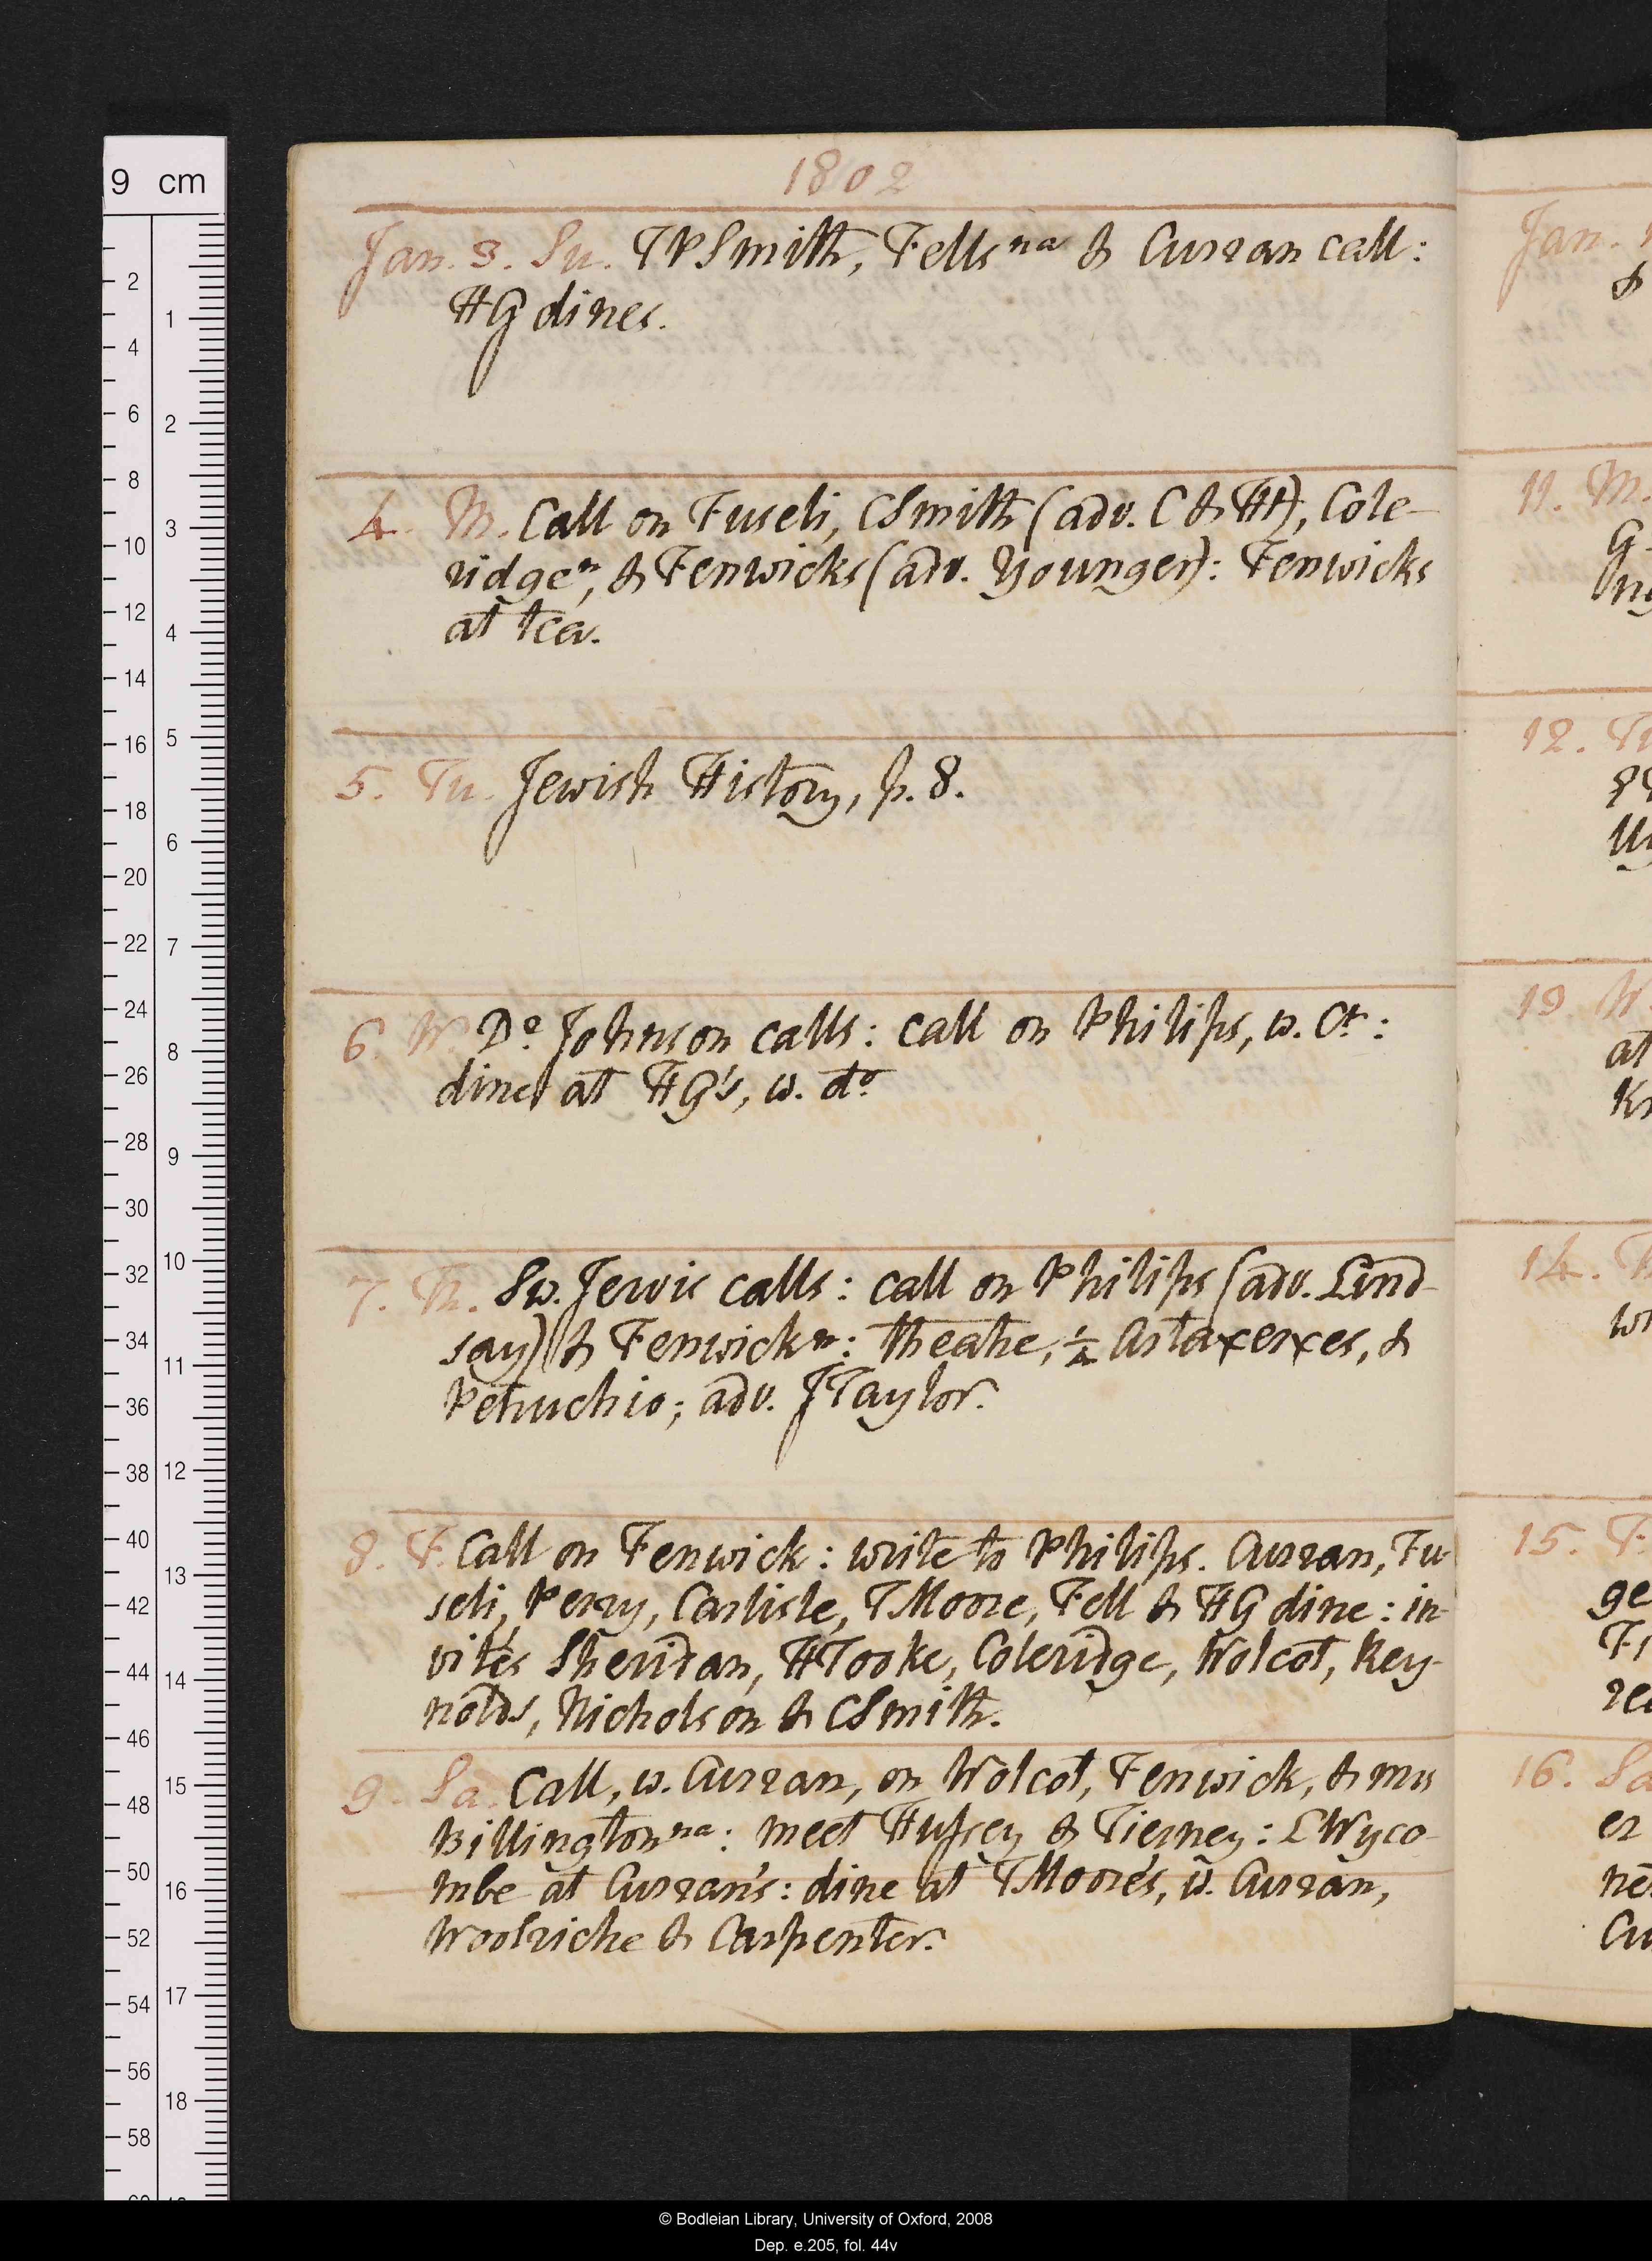 1802
Jan. 3. Su. TPSmith, Fells na & Curran call:
HG dines.
4. M. Call on Fuseli, CSmith (adv. C & Ht), Cole-
ridge n, & Fenwicks (adv. Younger): Fenwicks
at tea.
5. Tu. Jewish History, p. 8.
6. W. Do Johnson calls: call on Philips, w. Ct:
dine at HG's, w. do
7. Th. Sw. Jervis calls: call on Philips (adv. Lind-
say) & Fenwick n: theatre, 1/2 Artaxerxes, &
Petruchio; adv. JTaylor.
8. F. Call on Fenwick: write to Philips. Curran, Fu-
seli, Perry, Carlisle, TMoore, Fell & HG dine: in-
vités Sheridan, HTooke, Coleridge, Wolcot, Rey-
nolds, Nicholson & CSmith.
9. Sa. Call, w. Curran, on Wolcot, Fenwick, & mrs
Billington na: meet Hussey & Tierney: LWyco-
mbe at Curran's: dine at TMoore's, w. Curran,
Woolriche & Carpenter.
Jan.
&
11. M.
G
12. Tu
13. W
at
14. T
15. F.
ge
16. Sa
er
9 cm
2
4
6
8
10
12
14
16
18
20
22
24
26
28
30
32
34
36
38
40
42
44
46
48
50
52
54
56
58
1
2
3
4
5
6
7
8
9
10
11
12
13
14
15
16
17
18
© Bodleian Library, University of Oxford, 2008
Dep. e.205, fol. 44v